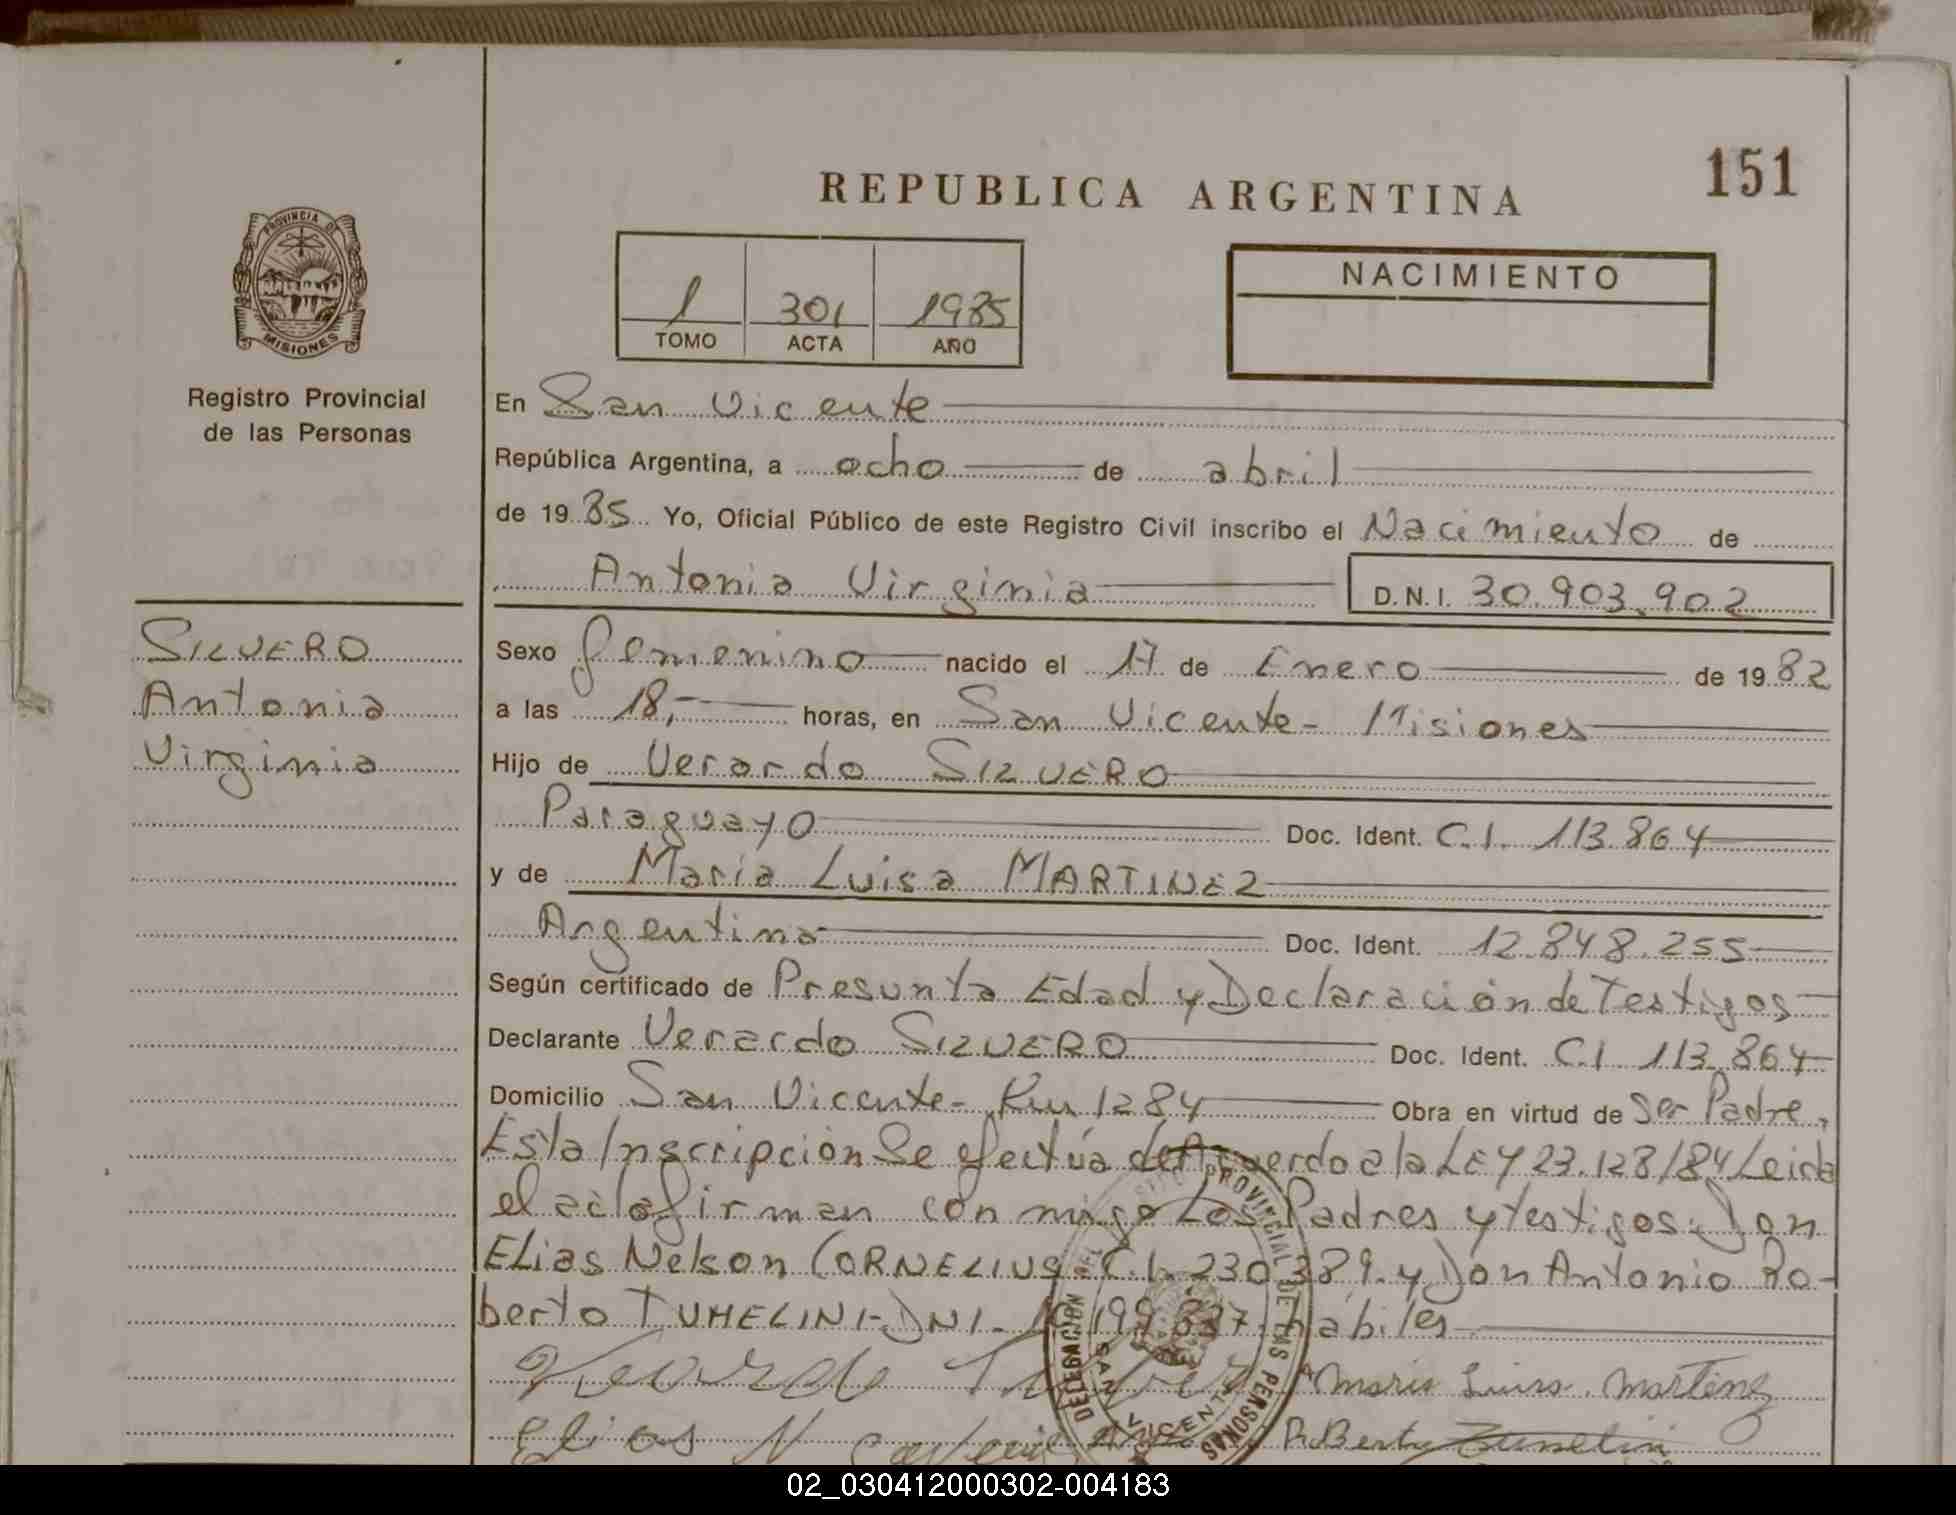 151
REPUBLICA ARGENTINA
PROVINCIA DE
MISIONES
Registro Provincial
de las Personas
1 301 1985
TOMO ACTA AÑO
NACIMIENTO
En San Vicente
República Argentina, a ocho de abril
de 19 85 Yo, Oficial Público de este Registro Civil inscribo el Nacimiento de
Antonia Virginia D.N.I. 30.903.902
SILVERO
Antonia
Virginia
Sexo femenino nacido el 17 de Enero de 19 82
a las 18,- horas, en San Vicente - Misiones
Hijo de Verardo SILVERO
Paraguayo Doc. Ident. C.I. 113.864
y de María Luisa MARTINEZ
Argentina Doc. Ident. 12.848.255
Según certificado de Presunta Edad y Declaración de Testigos
Declarante Verardo SILVERO Doc. Ident. C.I 113.864
Domicilio San Vicente - Km 1284 Obra en virtud de Ser Padre,
Esta Inscripción Se efectúa de Acuerdo a la LEY 23.128/84 Leida
el acta firman con migo Los Padres y testigos: Don
ELias Nelson CORNELIUS C.I. 230.389. y Don Antonio Ro-
berto TUMELINI - DNI - 199.837 - hábiles
Maria Luisa Martinez
Elias N
DELEGACION SAN VICENTE
PROVINCIAL DE LAS PERSONAS
02_030412000302-004183